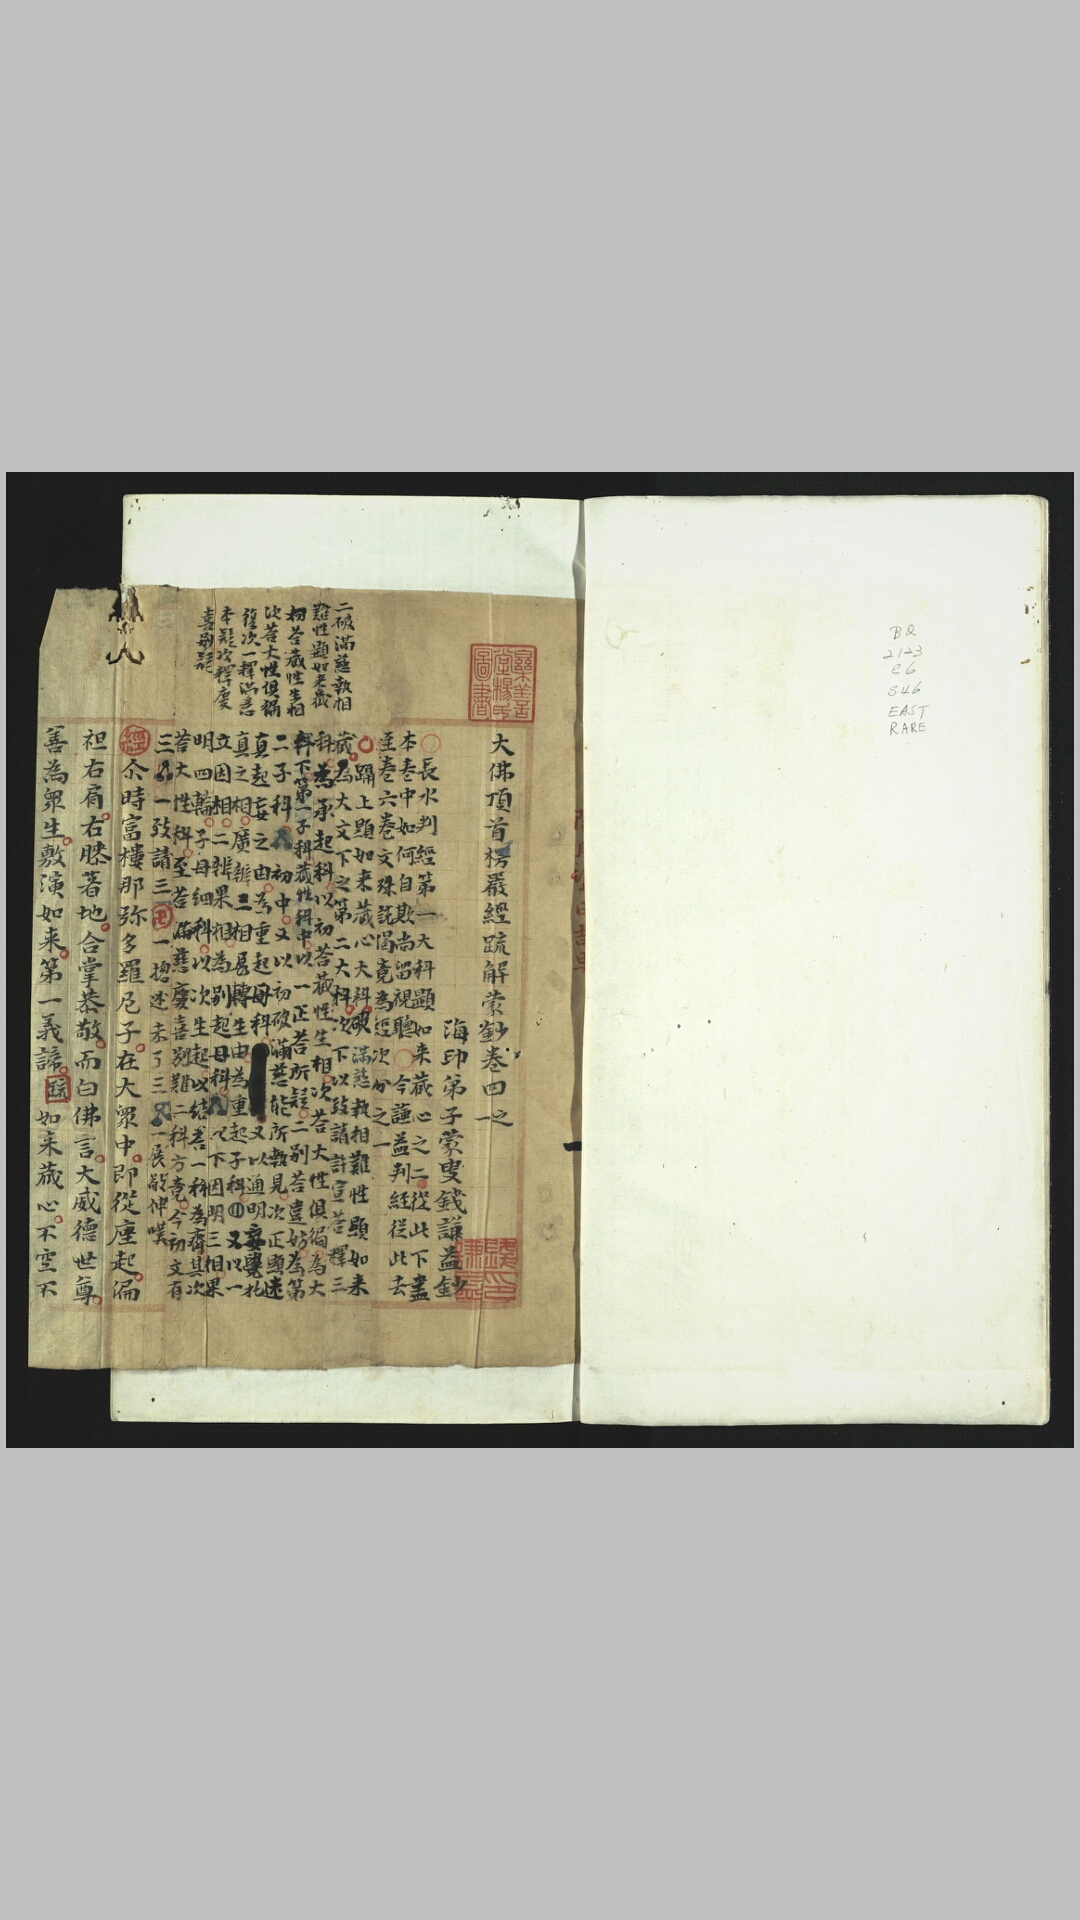 BQ
2123
C6
S46
EAST
RARE
大佛頂首楞嚴經疏解蒙鈔卷四之一
海印弟子蒙叟錢謙益鈔
長水判經第一大科顯如来藏心之二從此下盡
本卷中如何自欺尚留視聽今謙益判經從此去
至卷六卷文殊説偈竟為經次分之一
躡上顯如来藏心大科破滿慈執相難性顯如来
藏為大文下之第二大科次下以致請許宣荅釋三
科為承起科以初荅藏性生相次荅大性俱徧為大
科下第一子科藏性科中以一正荅所疑二別荅違妨為第
二子科初中又以初破滿慈能所執見次正顯迷
真起妄之由為重起母科又以通明妄覺托
真之相廣辨三相展轉生由為重起子科又以一
立因相二辨果相為別起母科以下因明三相果
明四輪子母細科以次生起以結荅一科為齊其次
荅大性科至荅滿慈慶喜別難二科方竟今初文有
三一致請三一揔述未了三一展敬伸嘆
經尒時富樓那弥多羅尼子在大眾中即從座起偏
袒右肩右膝著地合掌恭敬而白佛言大威德世尊
善為眾生敷演如来第一義諦疏如来藏心不空不
二破滿慈執相
難性顯如来藏
初荅藏性生相
次荅大性俱徧
後次一釋滿慈
本疑次釋慶
喜別疑